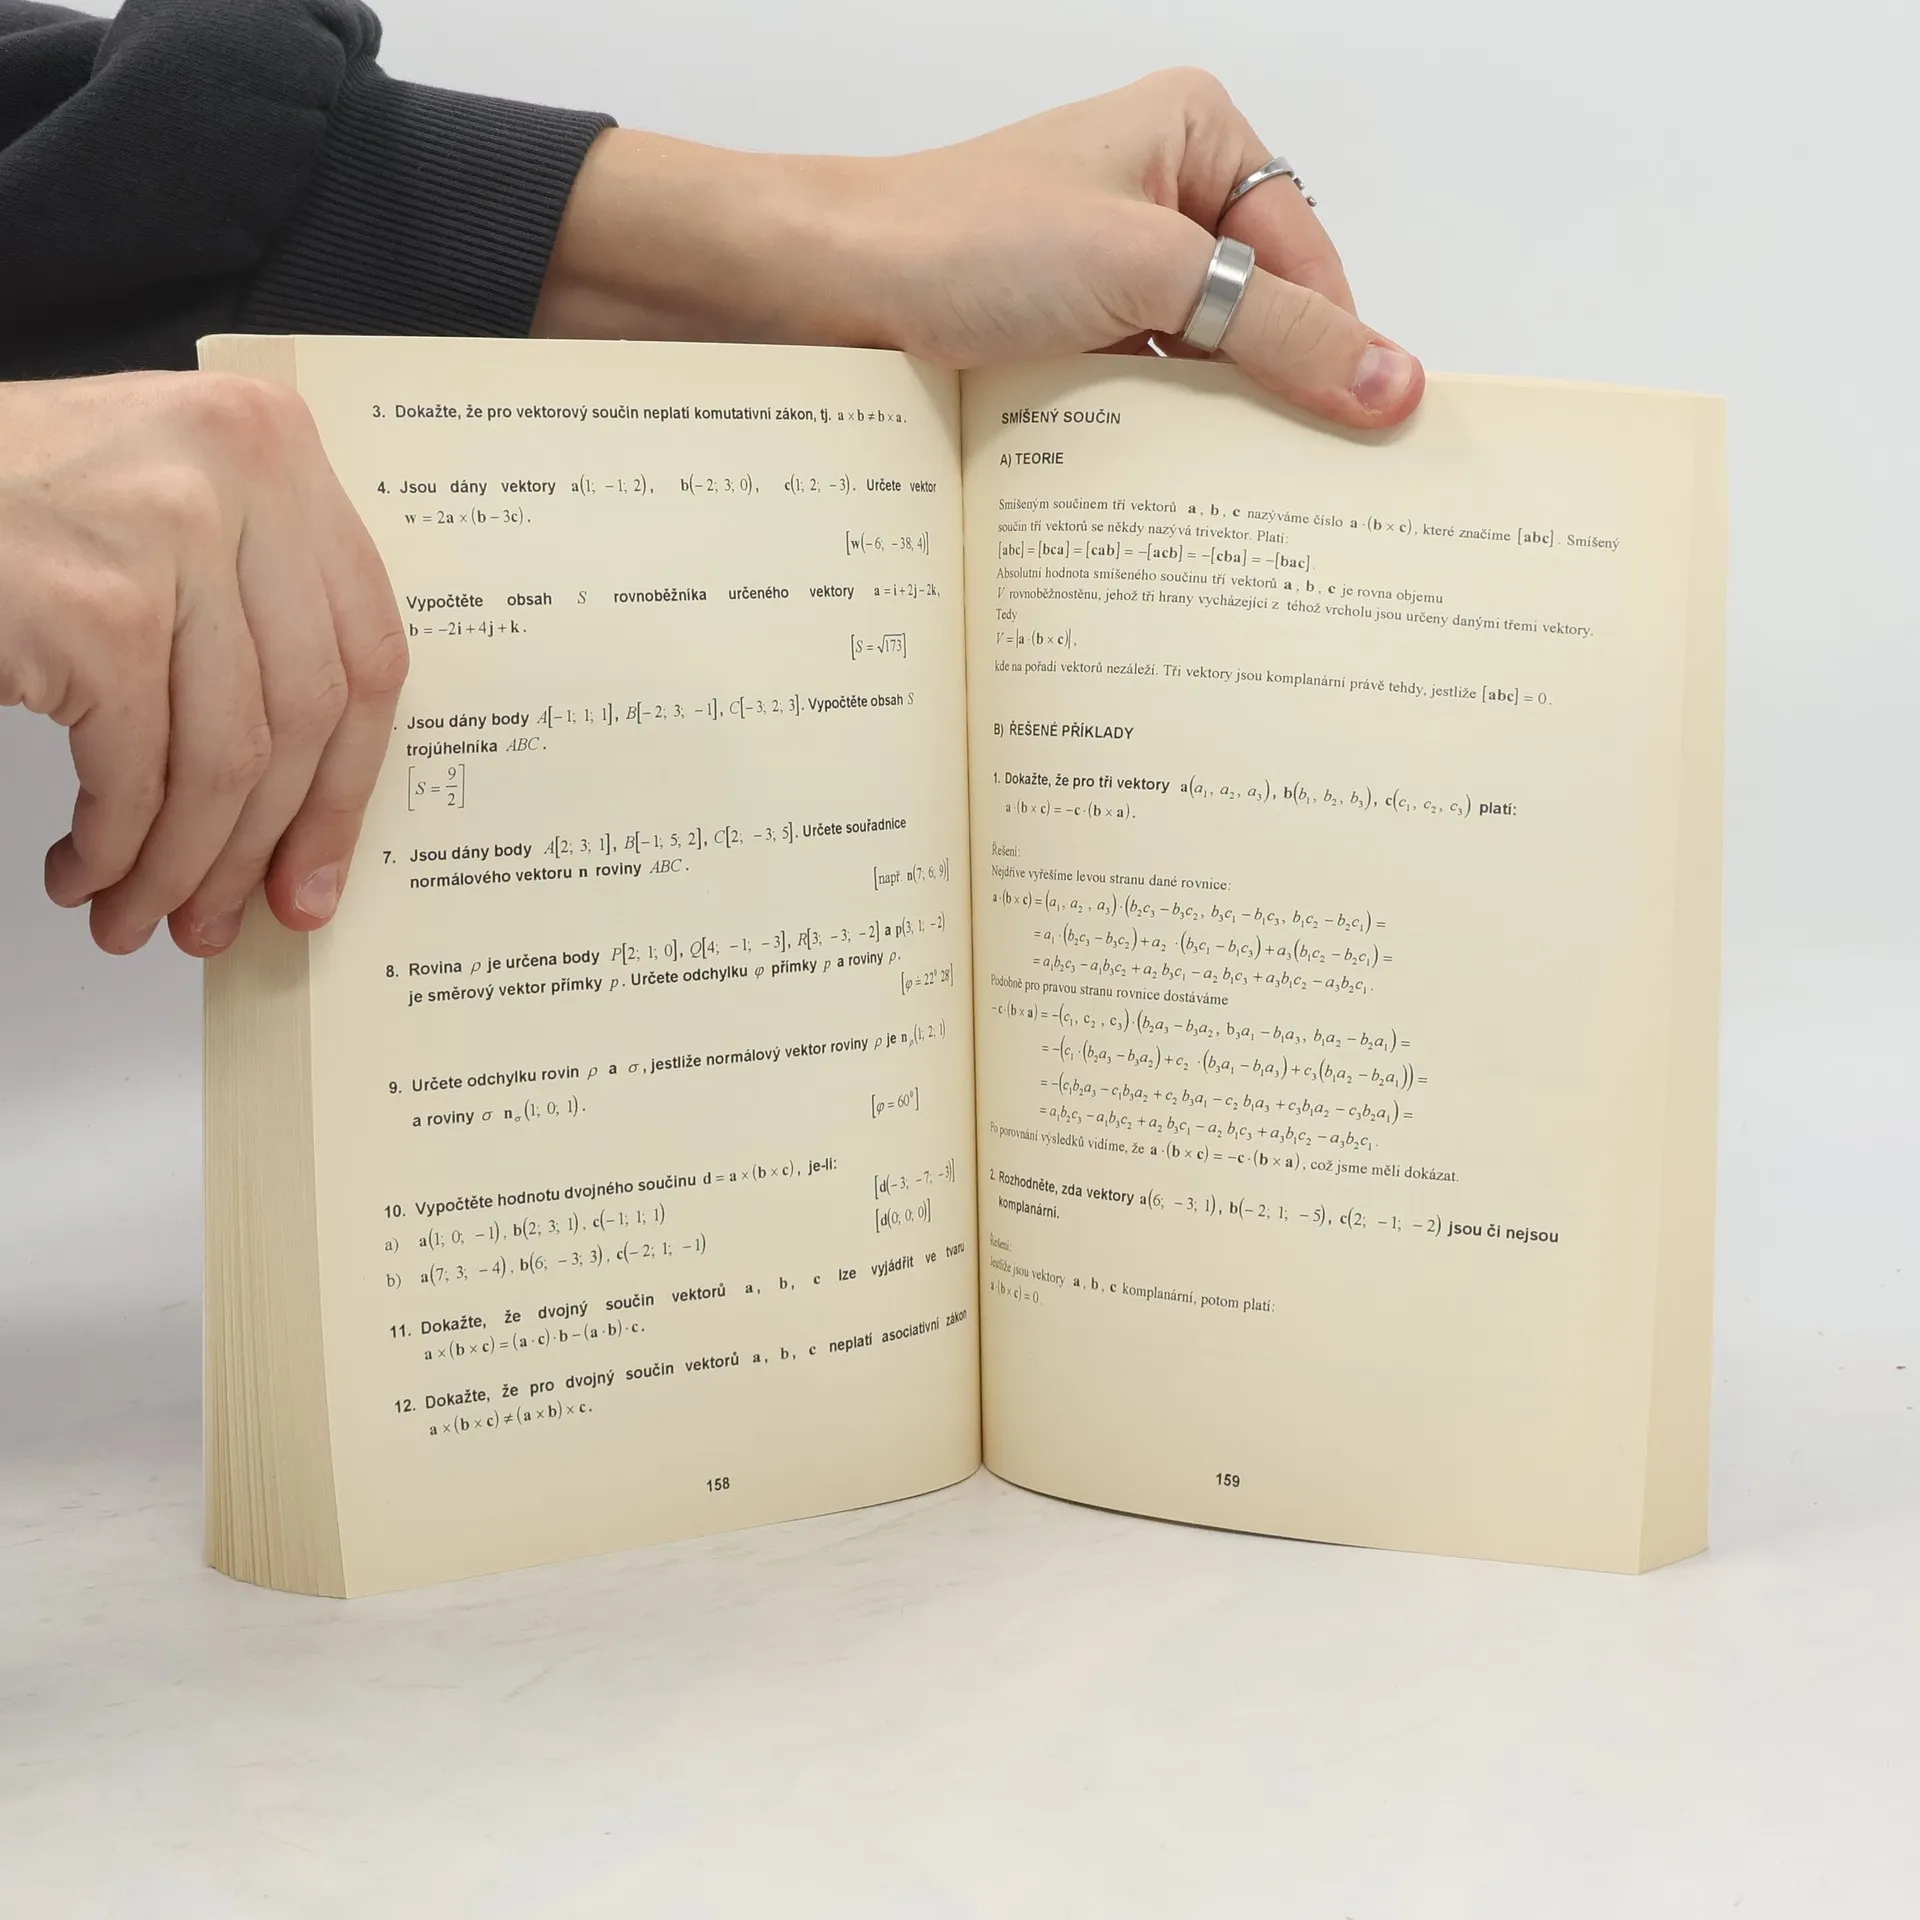 3. Dokažte, že pro vektorový součin neplatí komutativní zákon, tj. a × b ≠ b × a.
4. Jsou dány vektory a(1; −1; 2), b(−2; 3; 0), c(1; 2; −3). Určete vektor
w = 2a × (b − 3c).
[w(−6; −38; 4)]
Vypočtěte obsah S rovnoběžníka určeného vektory a = i + 2j − 2k,
b = −2i + 4j + k.
[S = √173]
. Jsou dány body A[−1; 1; 1], B[−2; 3; −1], C[−3; 2; 3]. Vypočtěte obsah S
trojúhelníka ABC.
[S = 9/2]
7. Jsou dány body A[2; 3; 1], B[−1; 5; 2], C[2; −3; 5]. Určete souřadnice
normálového vektoru n roviny ABC.
[např. n(7; 6; 9)]
8. Rovina ρ je určena body P[2; 1; 0], Q[4; −1; −3], R[3; −3; −2] a p(3; 1; −2)
je směrový vektor přímky p. Určete odchylku φ přímky p a roviny ρ.
[φ ≐ 22° 28']
9. Určete odchylku rovin ρ a σ, jestliže normálový vektor roviny ρ je nρ(1; 2; 1)
a roviny σ nσ(1; 0; 1).
[φ = 60°]
10. Vypočtěte hodnotu dvojného součinu d = a × (b × c), je-li:
a) a(1; 0; −1), b(2; 3; 1), c(−1; 1; 1) [d(−3; −7; −3)]
b) a(7; 3; −4), b(6; −3; 3), c(−2; 1; −1) [d(0; 0; 0)]
11. Dokažte, že dvojný součin vektorů a, b, c lze vyjádřit ve tvaru
a × (b × c) = (a · c) · b − (a · b) · c.
12. Dokažte, že pro dvojný součin vektorů a, b, c neplatí asociativní zákon
a × (b × c) ≠ (a × b) × c.
158
SMÍŠENÝ SOUČIN
A) TEORIE
Smíšeným součinem tří vektorů a, b, c nazýváme číslo a · (b × c), které značíme [abc]. Smíšený
součin tří vektorů se někdy nazývá trivektor. Platí:
[abc] = [bca] = [cab] = −[acb] = −[cba] = −[bac].
Absolutní hodnota smíšeného součinu tří vektorů a, b, c je rovna objemu
V rovnoběžnostěnu, jehož tři hrany vycházející z téhož vrcholu jsou určeny danými třemi vektory.
Tedy
V = |a · (b × c)|,
kde na pořadí vektorů nezáleží. Tři vektory jsou komplanární právě tehdy, jestliže [abc] = 0.
B) ŘEŠENÉ PŘÍKLADY
1. Dokažte, že pro tři vektory a(a₁, a₂, a₃), b(b₁, b₂, b₃), c(c₁, c₂, c₃) platí:
a · (b × c) = −c · (b × a).
Řešení:
Nejdříve vyřešíme levou stranu dané rovnice:
a · (b × c) = (a₁, a₂, a₃) · (b₂c₃ − b₃c₂, b₃c₁ − b₁c₃, b₁c₂ − b₂c₁) =
= a₁ · (b₂c₃ − b₃c₂) + a₂ · (b₃c₁ − b₁c₃) + a₃(b₁c₂ − b₂c₁) =
= a₁b₂c₃ − a₁b₃c₂ + a₂ b₃c₁ − a₂ b₁c₃ + a₃b₁c₂ − a₃b₂c₁.
Podobně pro pravou stranu rovnice dostáváme
−c · (b × a) = −(c₁, c₂, c₃) · (b₂a₃ − b₃a₂, b₃a₁ − b₁a₃, b₁a₂ − b₂a₁) =
= −(c₁ · (b₂a₃ − b₃a₂) + c₂ · (b₃a₁ − b₁a₃) + c₃(b₁a₂ − b₂a₁)) =
= −(c₁b₂a₃ − c₁b₃a₂ + c₂ b₃a₁ − c₂ b₁a₃ + c₃b₁a₂ − c₃b₂a₁) =
= a₁b₂c₃ − a₁b₃c₂ + a₂ b₃c₁ − a₂ b₁c₃ + a₃b₁c₂ − a₃b₂c₁.
Po porovnání výsledků vidíme, že a · (b × c) = −c · (b × a), což jsme měli dokázat.
2. Rozhodněte, zda vektory a(6; −3; 1), b(−2; 1; −5), c(2; −1; −2) jsou či nejsou
komplanární.
Řešení:
Jestliže jsou vektory a, b, c komplanární, potom platí:
a · (b × c) = 0.
159